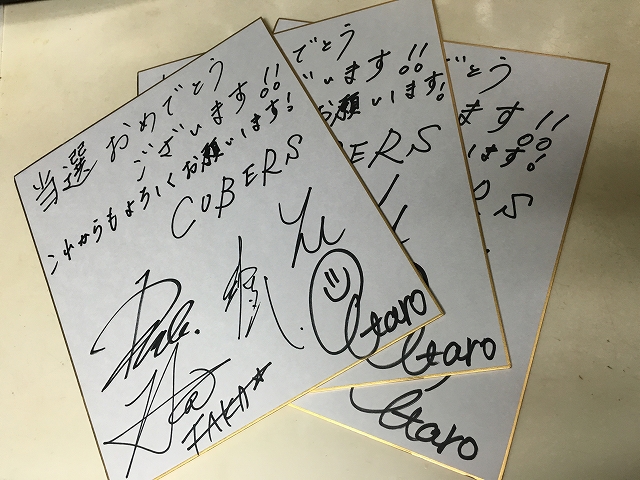 当選おめでとう
ございます!!
これからもよろしくお願いします!
COBERS
TAKA☆
Utaro
でとう
ざいます!!
お願いします!
BERS
Utaro
とう
ます!!
します!
RS
Utaro